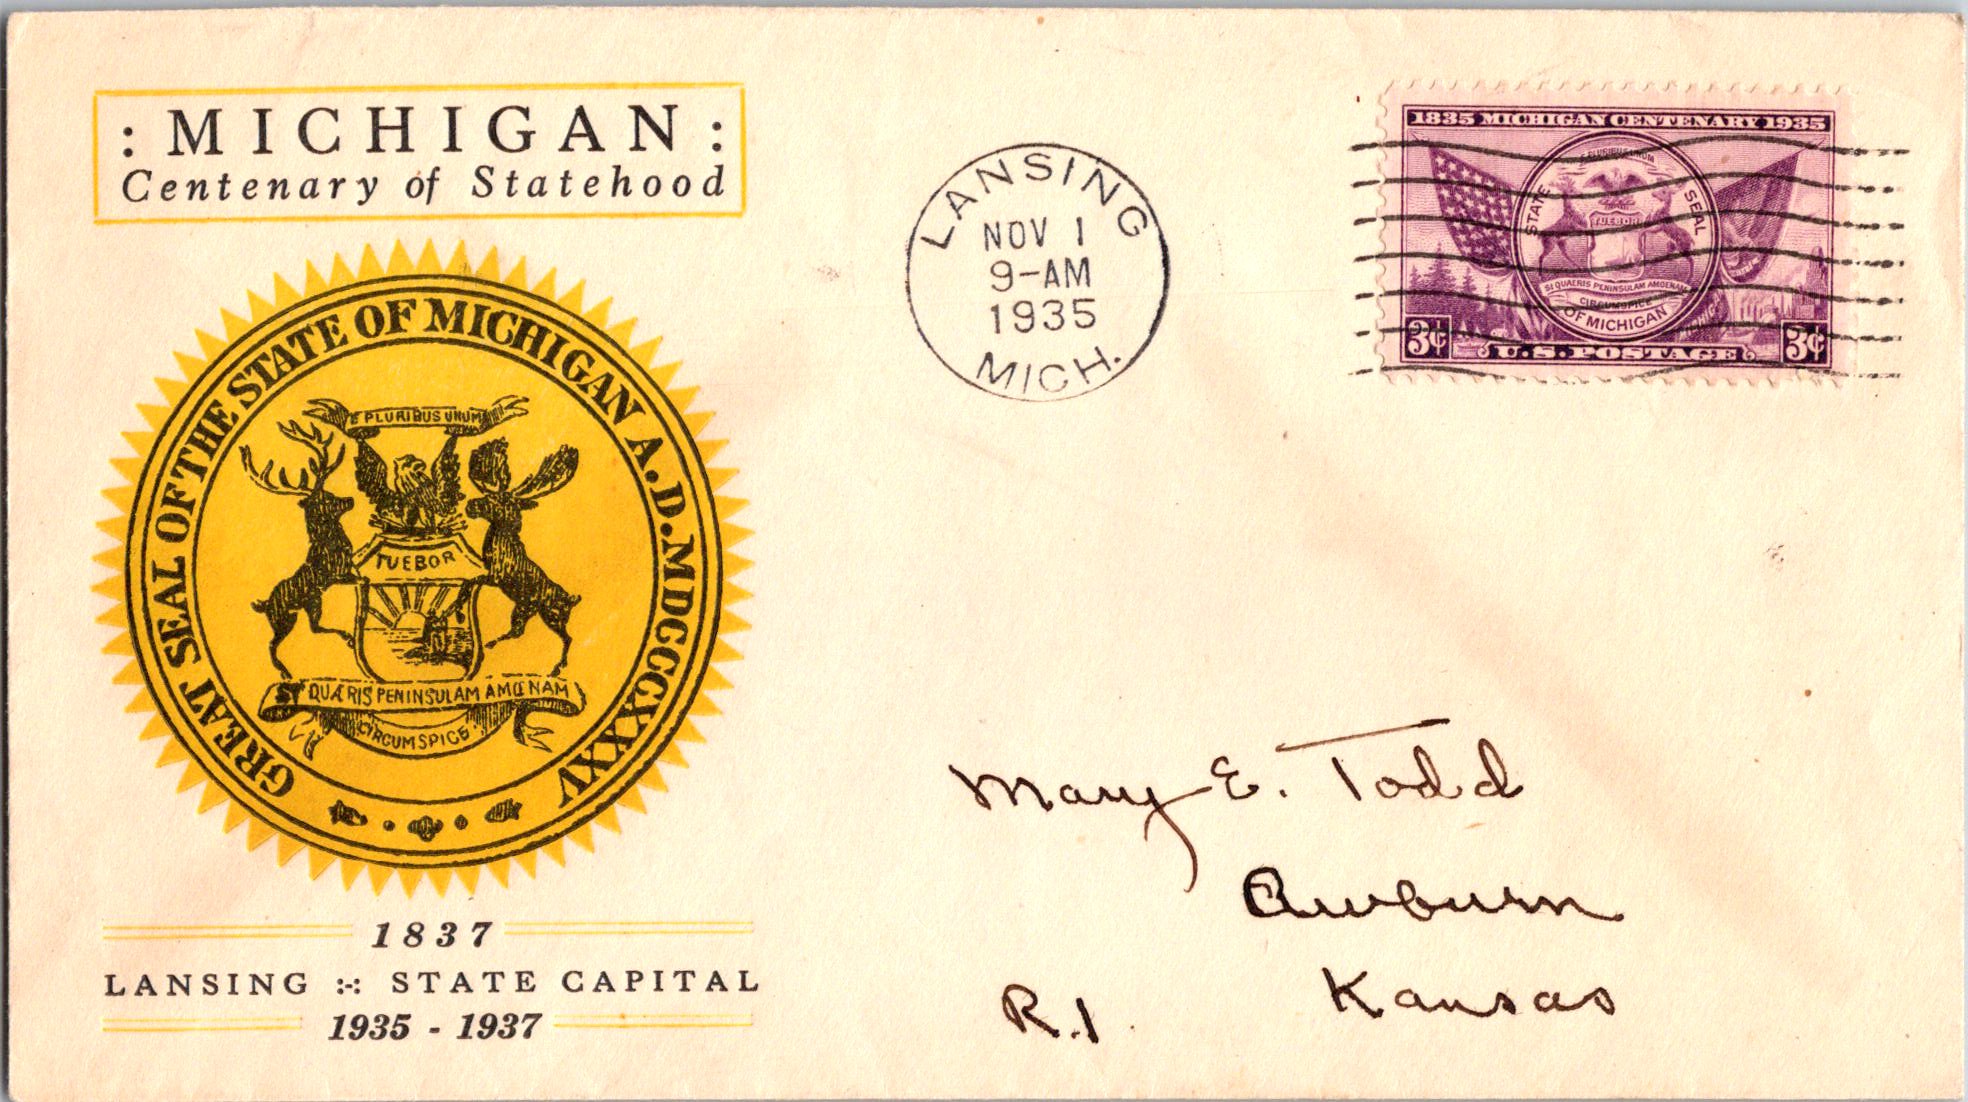 : MICHIGAN :
Centenary of Statehood
GREAT SEAL OF THE STATE OF MICHIGAN A.D. MDCCCXXXV
E PLURIBUS UNUM
TUEBOR
SI QUÆRIS PENINSULAM AMŒNAM
CIRCUMSPICE
1837
LANSING :-: STATE CAPITAL
1935 - 1937
LANSING
NOV 1
9-AM
1935
MICH.
1835 MICHIGAN CENTENARY 1935
E PLURIBUS UNUM
STATE SEAL
TUEBOR
SI QUAERIS PENINSULAM AMOENAM
CIRCUMSPICE
OF MICHIGAN
3¢ U.S. POSTAGE 3¢
Mary E. Todd
Auburn
Kansas
R.1.